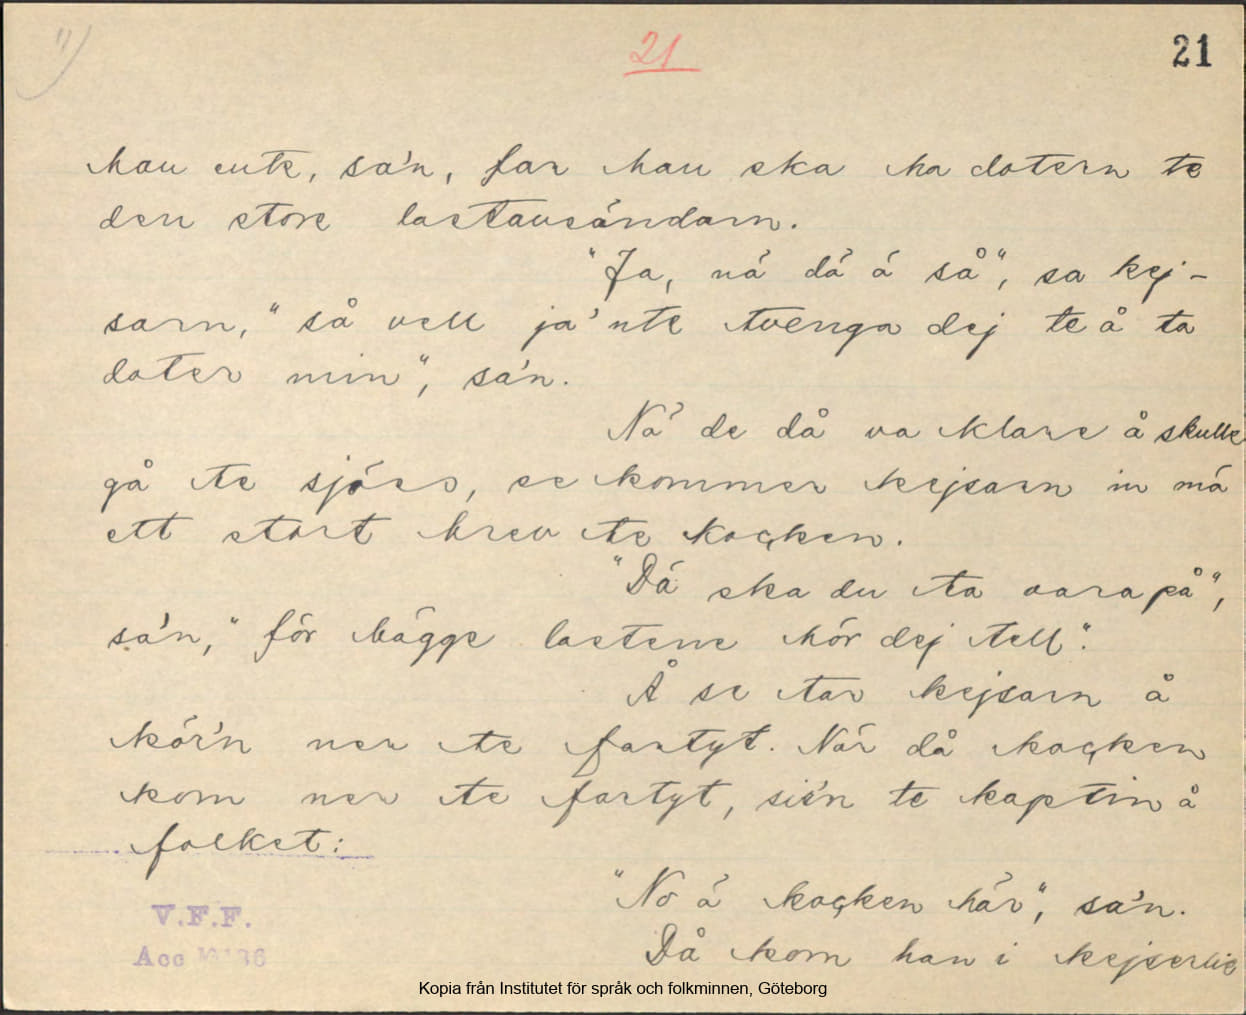 21
21
han ente, sa'n, far han ska ha dotern te
den store lastausándarn.
"Ja, ná dá á så", sa kej-
sarn, "så vell ja'nte tvenga dej te å ta
doter min", sa'n.
Ná de då va klare å skulle
gå te sjöss, se kommer kejsarn in má
ett stort brev te koçken.
"Dá ska du ta vara på",
sa'n, "för bágge lastene hör dej tell".
Å se tar kejsarn å
kör'n ner te fartyt. Nár då koçken
kom ner te fartyt, sie'n te kaptin å
folket:
"No á koçken hár", sa'n.
Då kom han i kejserlig
V.F.F.
Acc
Kopia från Institutet för språk och folkminnen, Göteborg